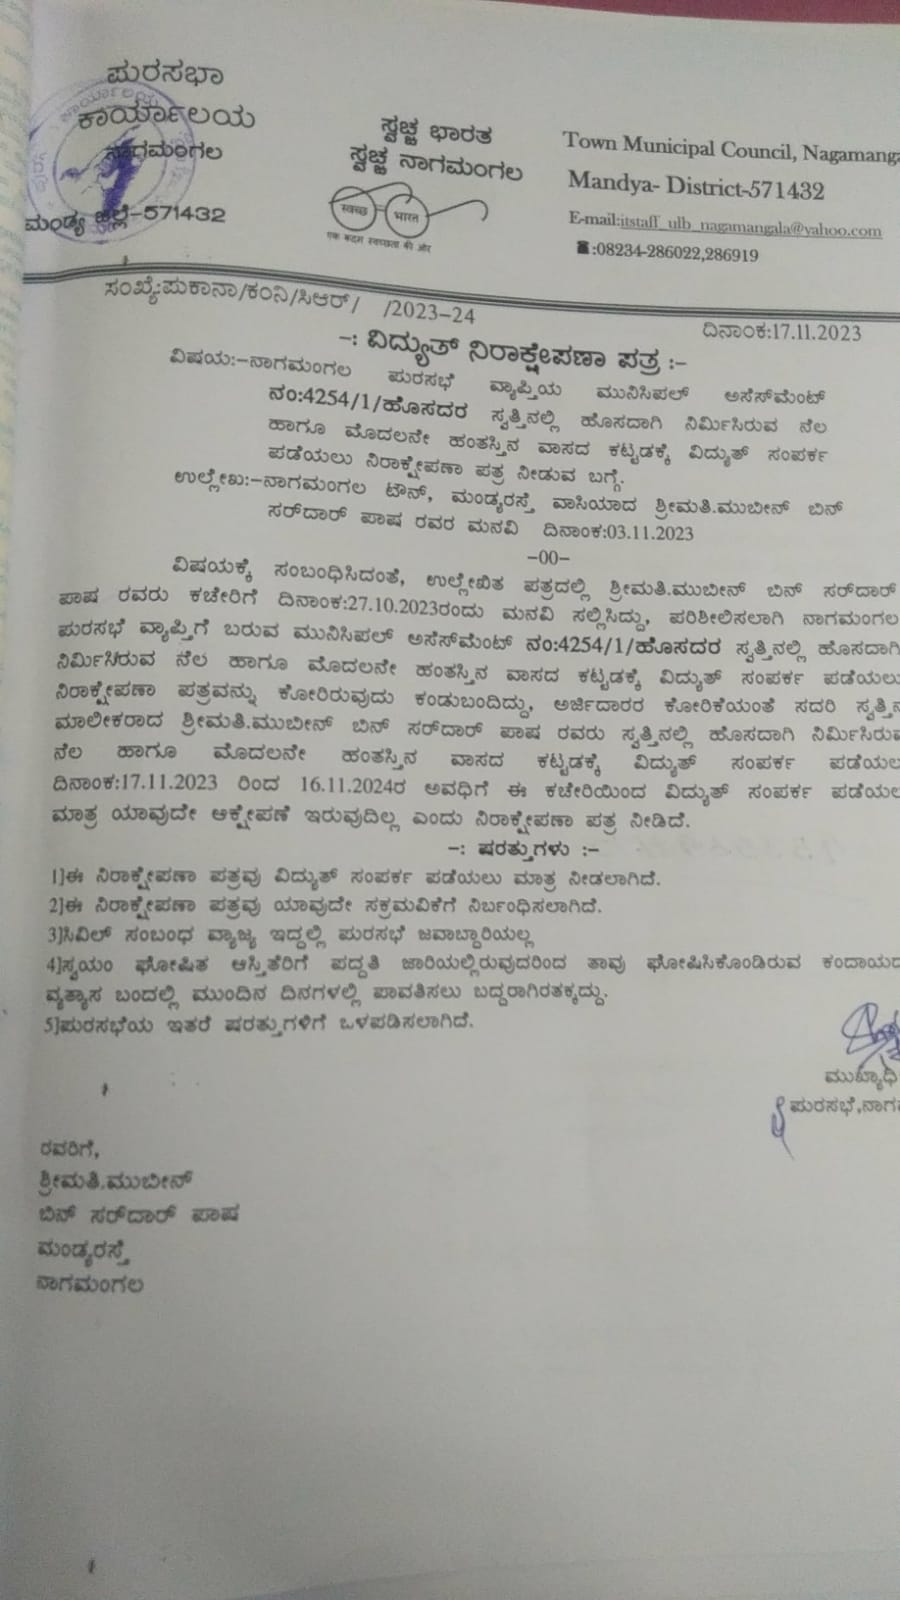 ಪುರಸಭಾ
ಕಾರ್ಯಾಲಯ
ನಾಗಮಂಗಲ
ಮಂಡ್ಯ ಜಿಲ್ಲೆ-571432
ಸ್ವಚ್ಛ ಭಾರತ
ಸ್ವಚ್ಛ ನಾಗಮಂಗಲ
स्वच्छ भारत
एक कदम स्वच्छता की ओर
Town Municipal Council, Nagamanga
Mandya- District-571432
E-mail:itstaff_ulb_nagamangala@yahoo.com
☎:08234-286022,286919
ಸಂಖ್ಯೆ:ಪುಕಾನಾ/ಕಂನಿ/ಸಿಆರ್/ /2023-24
ದಿನಾಂಕ:17.11.2023
-: ವಿದ್ಯುತ್ ನಿರಾಕ್ಷೇಪಣಾ ಪತ್ರ :-
ವಿಷಯ:-ನಾಗಮಂಗಲ ಪುರಸಭೆ ವ್ಯಾಪ್ತಿಯ ಮುನಿಸಿಪಲ್ ಅಸೆಸ್‌ಮೆಂಟ್
ನಂ:4254/1/ಹೊಸದರ ಸ್ವತ್ತಿನಲ್ಲಿ ಹೊಸದಾಗಿ ನಿರ್ಮಿಸಿರುವ ನೆಲ
ಹಾಗೂ ಮೊದಲನೇ ಹಂತಸ್ತಿನ ವಾಸದ ಕಟ್ಟಡಕ್ಕೆ ವಿದ್ಯುತ್ ಸಂಪರ್ಕ
ಪಡೆಯಲು ನಿರಾಕ್ಷೇಪಣಾ ಪತ್ರ ನೀಡುವ ಬಗ್ಗೆ.
ಉಲ್ಲೇಖ:-ನಾಗಮಂಗಲ ಟೌನ್, ಮಂಡ್ಯರಸ್ತೆ ವಾಸಿಯಾದ ಶ್ರೀಮತಿ.ಮುಬೀನ್ ಬಿನ್
ಸರ್‌ದಾರ್ ಪಾಷ ರವರ ಮನವಿ ದಿನಾಂಕ:03.11.2023
-00-
ವಿಷಯಕ್ಕೆ ಸಂಬಂಧಿಸಿದಂತೆ, ಉಲ್ಲೇಖಿತ ಪತ್ರದಲ್ಲಿ ಶ್ರೀಮತಿ.ಮುಬೀನ್ ಬಿನ್ ಸರ್‌ದಾರ್
ಪಾಷ ರವರು ಕಚೇರಿಗೆ ದಿನಾಂಕ:27.10.2023ರಂದು ಮನವಿ ಸಲ್ಲಿಸಿದ್ದು, ಪರಿಶೀಲಿಸಲಾಗಿ ನಾಗಮಂಗಲ
ಪುರಸಭೆ ವ್ಯಾಪ್ತಿಗೆ ಬರುವ ಮುನಿಸಿಪಲ್ ಅಸೆಸ್‌ಮೆಂಟ್ ನಂ:4254/1/ಹೊಸದರ ಸ್ವತ್ತಿನಲ್ಲಿ ಹೊಸದಾಗಿ
ನಿರ್ಮಿಸಿರುವ ನೆಲ ಹಾಗೂ ಮೊದಲನೇ ಹಂತಸ್ತಿನ ವಾಸದ ಕಟ್ಟಡಕ್ಕೆ ವಿದ್ಯುತ್ ಸಂಪರ್ಕ ಪಡೆಯಲು
ನಿರಾಕ್ಷೇಪಣಾ ಪತ್ರವನ್ನು ಕೋರಿರುವುದು ಕಂಡುಬಂದಿದ್ದು, ಅರ್ಜಿದಾರರ ಕೋರಿಕೆಯಂತೆ ಸದರಿ ಸ್ವತ್ತಿನ
ಮಾಲೀಕರಾದ ಶ್ರೀಮತಿ.ಮುಬೀನ್ ಬಿನ್ ಸರ್‌ದಾರ್ ಪಾಷ ರವರು ಸ್ವತ್ತಿನಲ್ಲಿ ಹೊಸದಾಗಿ ನಿರ್ಮಿಸಿರುವ
ನೆಲ ಹಾಗೂ ಮೊದಲನೇ ಹಂತಸ್ತಿನ ವಾಸದ ಕಟ್ಟಡಕ್ಕೆ ವಿದ್ಯುತ್ ಸಂಪರ್ಕ ಪಡೆಯಲ
ದಿನಾಂಕ:17.11.2023 ರಿಂದ 16.11.2024ರ ಅವಧಿಗೆ ಈ ಕಚೇರಿಯಿಂದ ವಿದ್ಯುತ್ ಸಂಪರ್ಕ ಪಡೆಯಲ
ಮಾತ್ರ ಯಾವುದೇ ಆಕ್ಷೇಪಣೆ ಇರುವುದಿಲ್ಲ ಎಂದು ನಿರಾಕ್ಷೇಪಣಾ ಪತ್ರ ನೀಡಿದೆ.
-: ಷರತ್ತುಗಳು :-
1]ಈ ನಿರಾಕ್ಷೇಪಣಾ ಪತ್ರವು ವಿದ್ಯುತ್ ಸಂಪರ್ಕ ಪಡೆಯಲು ಮಾತ್ರ ನೀಡಲಾಗಿದೆ.
2]ಈ ನಿರಾಕ್ಷೇಪಣಾ ಪತ್ರವು ಯಾವುದೇ ಸಕ್ರಮವಿಕೆಗೆ ನಿರ್ಬಂಧಿಸಲಾಗಿದೆ.
3]ಸಿವಿಲ್ ಸಂಬಂಧ ವ್ಯಾಜ್ಯ ಇದ್ದಲ್ಲಿ ಪುರಸಭೆ ಜವಾಬ್ದಾರಿಯಲ್ಲ
4]ಸ್ವಯಂ ಘೋಷಿತ ಆಸ್ತಿತೆರಿಗೆ ಪದ್ದತಿ ಜಾರಿಯಲ್ಲಿರುವುದರಿಂದ ತಾವು ಘೋಷಿಸಿಕೊಂಡಿರುವ ಕಂದಾಯದ
ವ್ಯತ್ಯಾಸ ಬಂದಲ್ಲಿ ಮುಂದಿನ ದಿನಗಳಲ್ಲಿ ಪಾವತಿಸಲು ಬದ್ದರಾಗಿರತಕ್ಕದ್ದು.
5]ಪುರಸಭೆಯ ಇತರೆ ಷರತ್ತುಗಳಿಗೆ ಒಳಪಡಿಸಲಾಗಿದೆ.
ಮುಖ್ಯಾಧಿ
ಪುರಸಭೆ,ನಾಗ
ರವರಿಗೆ,
ಶ್ರೀಮತಿ.ಮುಬೀನ್
ಬಿನ್ ಸರ್‌ದಾರ್ ಪಾಷ
ಮಂಡ್ಯರಸ್ತೆ
ನಾಗಮಂಗಲ